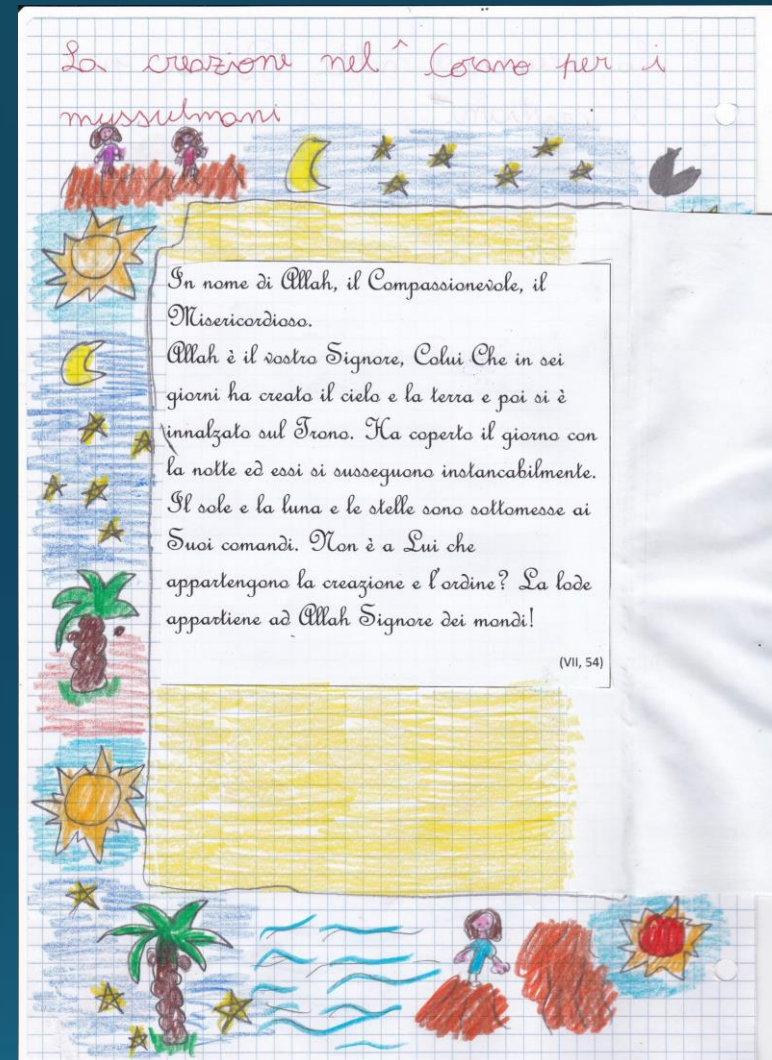 La creazione nel Corano per i
mussulmani
In nome di Allah, il Compassionevole, il
Misericordioso.
Allah è il vostro Signore, Colui Che in sei
giorni ha creato il cielo e la terra e poi si è
innalzato sul Trono. Ha coperto il giorno con
la notte ed essi si susseguono instancabilmente.
Il sole e la luna e le stelle sono sottomesse ai
Suoi comandi. Non è a Lui che
appartengono la creazione e l'ordine? La lode
appartiene ad Allah Signore dei mondi!
(VII, 54)